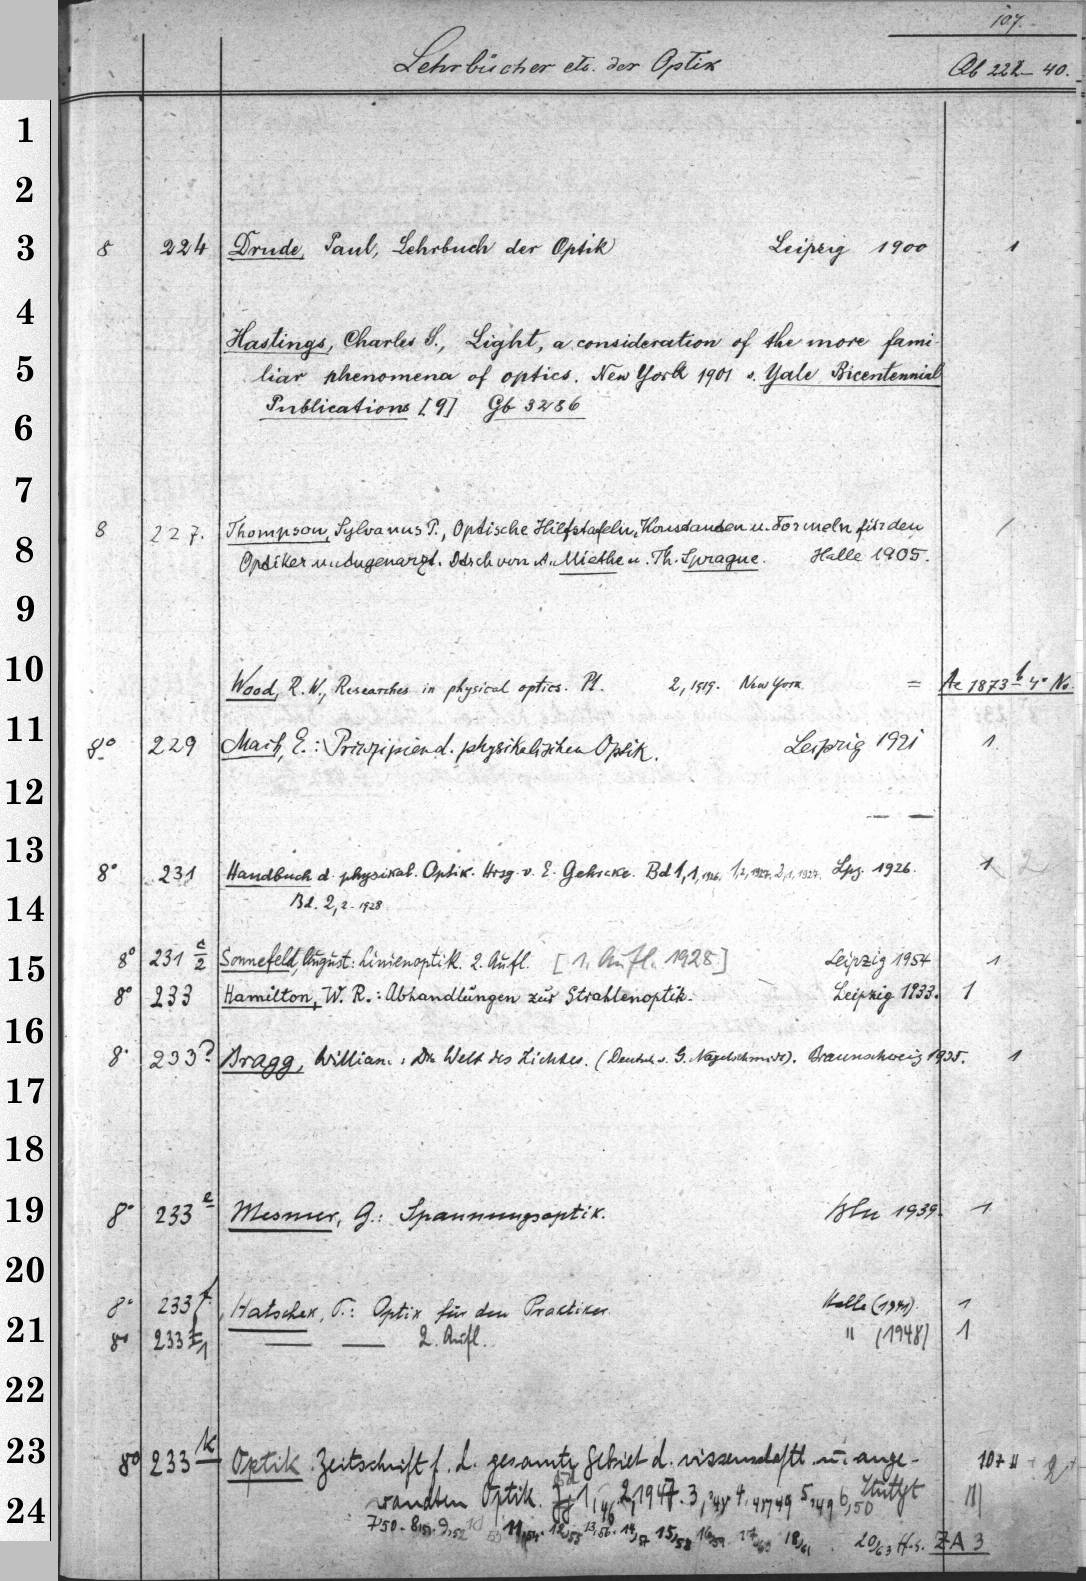 107.
Lehrbücher etc. der Optik Ab 222-40.
1
2
3 8 224 Drude, Paul, Lehrbuch der Optik Leipzig 1900 1
4
Hastings, Charles S., Light, a consideration of the more fami-
5 liar phenomena of optics. New York 1901 s. Yale Bicentennial
6 Publications [9] Gb 3286
7
8 227. Thompson, Sylvanus P., Optische Hilfstafeln, Konstanten u. Formeln für den /
8 Optiker u. Augenarzt. Dtsch von A. Miethe u. Th. Sprague. Halle 1905.
9
10 Wood, R. W., Researches in physical optics. Pt. 2, 1919. New York = Ae 1873 b 4° No.
11 8° 229 Mach, E.: Prinzipien d. physikalischen Optik. Leipzig 1921 1
12 — —
13 8° 231 Handbuch d. physikal. Optik. Hrsg. v. E. Gehrcke. Bd 1,1, 1926. 1,2, 1927. 2,1, 1927. Lpz. 1926. 1 2
14 Bd. 2,2. 1928
15 8° 231 c/2 Sonnefeld, August: Linienoptik. 2. Aufl. [1. Aufl. 1928] Leipzig 1954 1
8° 233 Hamilton, W. R.: Abhandlungen zur Strahlenoptik. Leipzig 1933. 1
16
8° 233 Bragg, William: Die Welt des Lichtes. (Deutsch v. G. Nagelschmidt). Braunschweig 1935. 1
17
18
19 8° 233 e Mesmer, G.: Spannungsoptik. Bln 1939. 1
20
8° 233 f Hatschek, P.: Optik für den Praktiker Halle (1941). 1
21 8° 233 f1 — — 2. Aufl. " (1948) 1
22
23 8° 233 k Optik. Zeitschrift f. d. gesamte Gebiet d. wissenschaftl. u. ange- 107
24 wandten Optik. 1,46 2,1947. 3,48 4,49 5,49 6,50 Stuttgt
7,50. 8,51. 9,52 10,53 11,54. 12,55 13,56. 14,57 15,58 16,59 17,60 18,61 20,63 ZA 3